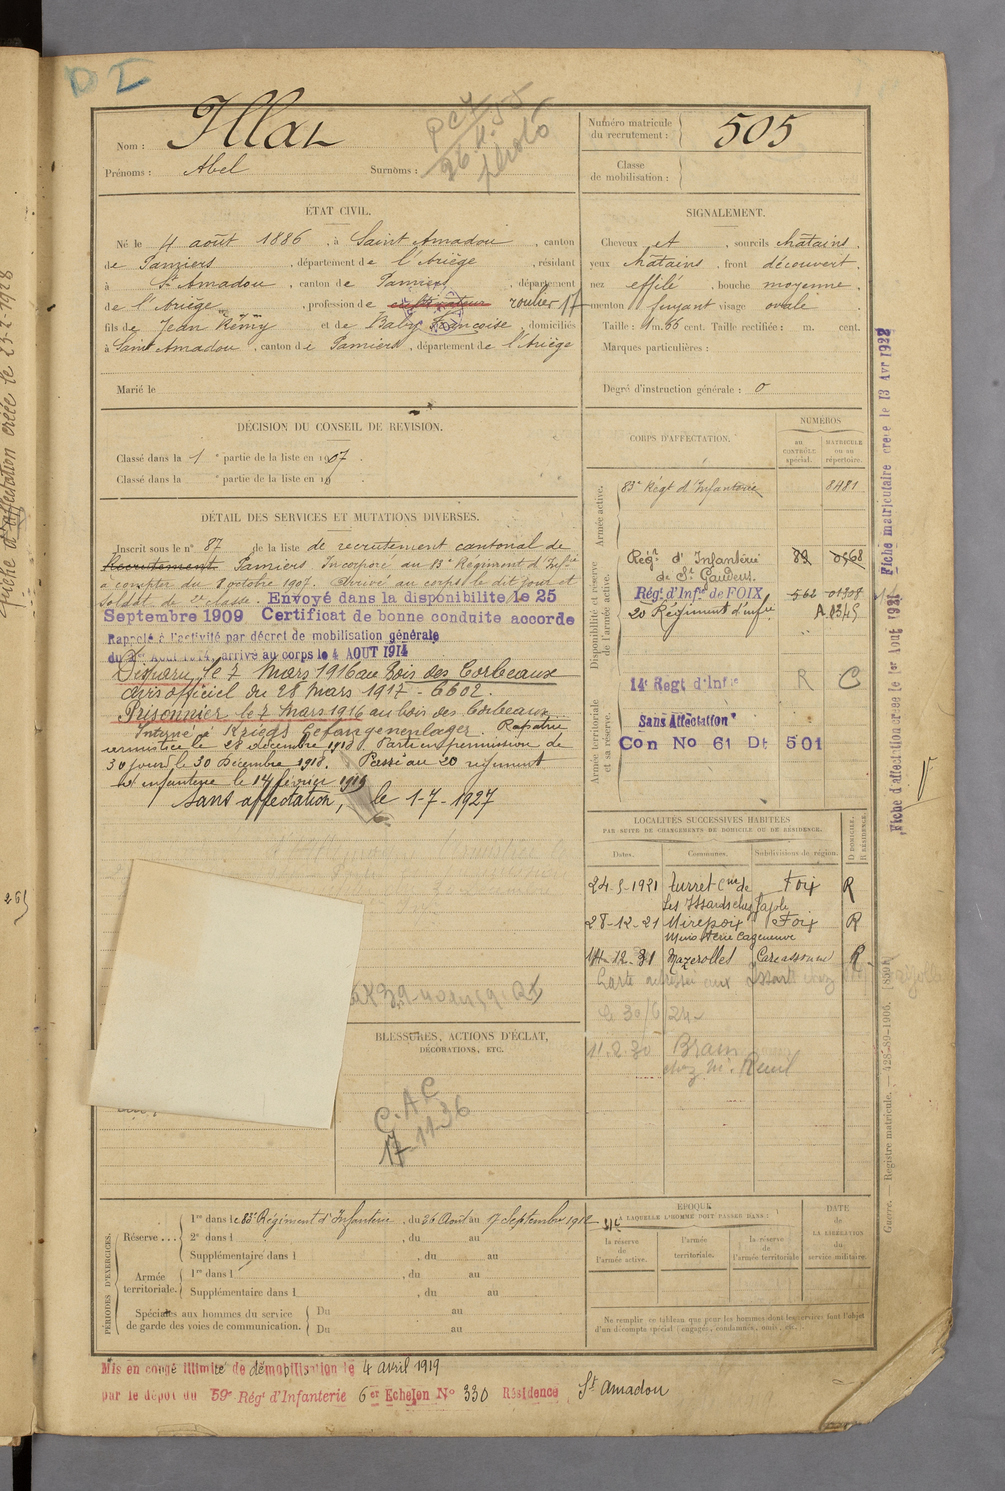 D I
Nom : Illaz
Prénoms : Abel Surnoms :
26 11 55
photo
Numéro matricule du recrutement : 505
Classe de mobilisation :
ÉTAT CIVIL.
Né le 4 août 1886, à Saint Amadou, canton
de Pamiers, département de l'Ariège, résidant
à St Amadou, canton de Pamiers, département
de l'Ariège, profession de cultivateur roulier 17
fils de Jean Rémy et de Baby Françoise, domiciliés
à Saint Amadou, canton de Pamiers, département de l'Ariège
Marié le
SIGNALEMENT.
Cheveux et, sourcils châtains,
yeux châtains, front découvert,
nez effilé, bouche moyenne,
menton fuyant visage ovale
Taille : 1 m. 66 cent. Taille rectifiée : m. cent.
Marques particulières :
Degré d'instruction générale : 0
DÉCISION DU CONSEIL DE REVISION.
Classé dans la 1e partie de la liste en 1907.
Classé dans la e partie de la liste en 19
DÉTAIL DES SERVICES ET MUTATIONS DIVERSES.
Inscrit sous le n° 87 de la liste de recrutement cantonal de
Recrutement Pamiers. Incorporé au 83e Régiment d'Infie
à compter du 8 octobre 1907. Arrivé au corps le dit jour et
soldat de 2e classe. Envoyé dans la disponibilité le 25
Septembre 1909 Certificat de bonne conduite accordé
Rappelé à l'activité par décret de mobilisation générale
du Août 1914, arrivé au corps le 4 AOUT 1914
Disparu le 7 Mars 1916 au Bois des Corbeaux
avis officiel du 28 Mars 1917 - 6602.
Prisonnier le 7 Mars 1916 au bois des Corbeaux
Interné à Kriegs Gefangenenlager. Rapatrié
armistice le 28 décembre 1918. Parti en permission de
30 jours le 30 Décembre 1918. Passé au 20 régiment
d'infanterie le 14 février 1919
Sans affectation, le 1-7-1927
CORPS D'AFFECTATION.
NUMÉROS
AU CONTRÔLE spécial.
MATRICULE OU AU répertoire.
Armée active.
83e Régt d'Infanterie 8481
Disponibilité et réserve de l'armée active.
Régt d'Infanterie de St Gaudens. 83 0568
Régt d'Infie de FOIX 562 01308
20 Régiment d'infie A 2345
Armée territoriale et sa réserve.
14e Regt d'Infie R C
Sans Affectation
Con No 61 Dt 501
LOCALITÉS SUCCESSIVES HABITÉES
PAR SUITE DE CHANGEMENTS DE DOMICILE OU DE RÉSIDENCE.
Dates. Communes. Subdivisions de région. D DOMICILE, R RÉSIDENCE.
24-5-1921 Foix R
Les Issards chez
28-12-21 Mirepoix Foix R
14-12-31 Mazerolles Carcassonne R
Le 30/6/24
11.2.30 Bram
chez Mr.
BLESSURES, ACTIONS D'ÉCLAT,
DÉCORATIONS, ETC.
C.A.C
17-11-36
PÉRIODES D'EXERCICES.
Réserve ...
1re dans le 83e Régiment d'Infanterie, du 26 Août au 17 Septembre 1912
2e dans l , du au
Supplémentaire dans l , du au
Armée territoriale.
1re dans l , du au
Supplémentaire dans l , du au
Spéciales aux hommes du service de garde des voies de communication.
Du au
Du au
EPOQUE
A LAQUELLE L'HOMME DOIT PASSER DANS :
la réserve de l'armée active.
l'armée territoriale.
la réserve de l'armée territoriale
DATE de LA LIBÉRATION du service militaire.
Ne remplir ce tableau que pour les hommes dont les services font l'objet
d'un décompte spécial (engagés, condamnés, omis, etc.).
Mis en congé illimité de démobilisation le 4 avril 1919
par le dépôt du 59e Régt d'Infanterie 6er Echelon N° 330 Résidence St Amadou
Fiche matriculaire créée le 13 Avr 1922
Fiche d'affectation créée le 1er Aout 1921
Guerre. — Registre matricule. — 428-89-1906.
Fiche d'affectation créée le 23-2-1928